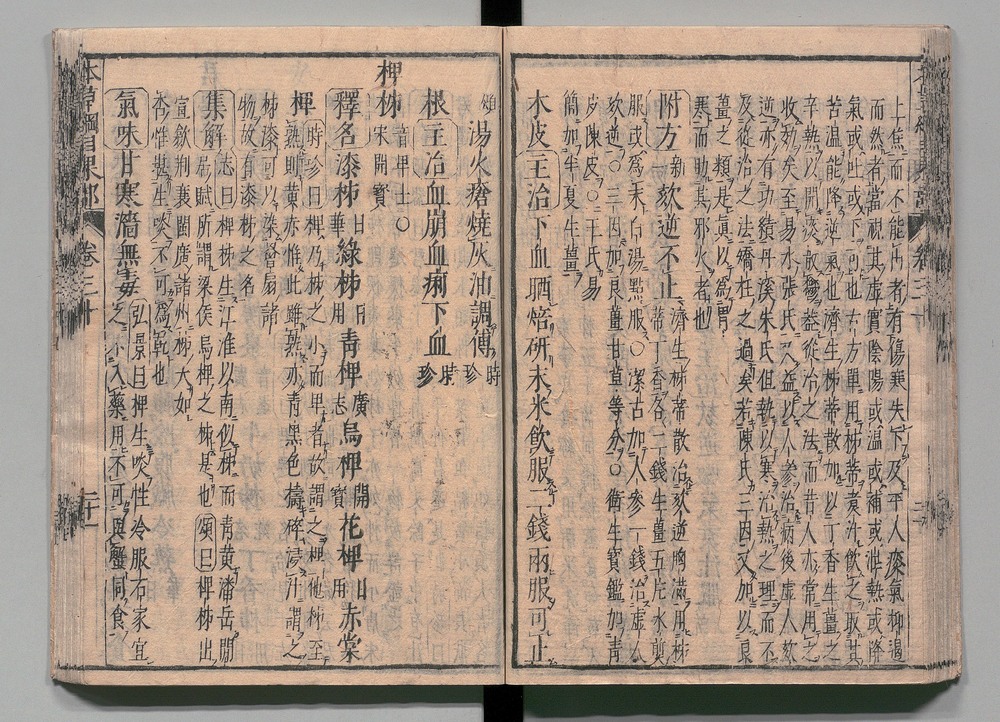 上焦而不能內者有傷寒失下及平人痰氣抑遏
而然者當視其虛實陰陽或溫或補或泄熱或降
氣或吐或下可也古方單用柿蒂煮汁飲之取其
苦溫能降逆氣也濟生柿蒂散加以丁香生薑之
辛熱以開痰散鬱蓋從治之法而昔人亦常用之
收效矣至易水張氏又益以人參治病後虛人欬
逆亦有功績丹溪朱氏但執以寒治熱之理而不
及從治之法矯枉之過矣若陳氏三因又加以良
薑之類是真以為胃
寒而助其邪火者也
附方新欬逆不止濟生柿蒂散治欬逆胸滿用柿
蒂丁香各二錢生薑五片水煎
服或為末白湯點服〇潔古加人參一錢治虛人
欬逆〇三因加良薑甘草等分〇衛生寶鑑加青
皮陳皮〇王氏易
簡加半夏生薑
木皮主治下血晒焙研末米飲服二錢兩服可止
湯火瘡燒灰油調傅時珍
根主治血崩血痢下血時珍
椑柿音卑士〇
宋開寶
釋名漆柿日華綠柿日用青椑廣志烏椑開寶花椑日用赤棠
椑時珍曰椑乃柿之小而卑者故謂之椑他柿至
熟則黃赤惟此雖熟亦青黑色擣碎浸汁謂之
柿漆可以染罾扇諸
物故有漆柿之名
集解志曰椑柿生江淮以南似柿而青黃潘岳閒
居賦所謂梁侯烏椑之柿是也頌曰椑柿出
宣歙荆襄閩廣諸州柿大如
杏惟堪生啖不可為乾也
氣味甘寒濇無毒弘景曰椑生啖性冷服石家宜
之不入藥用不可與蟹同食
卷三十